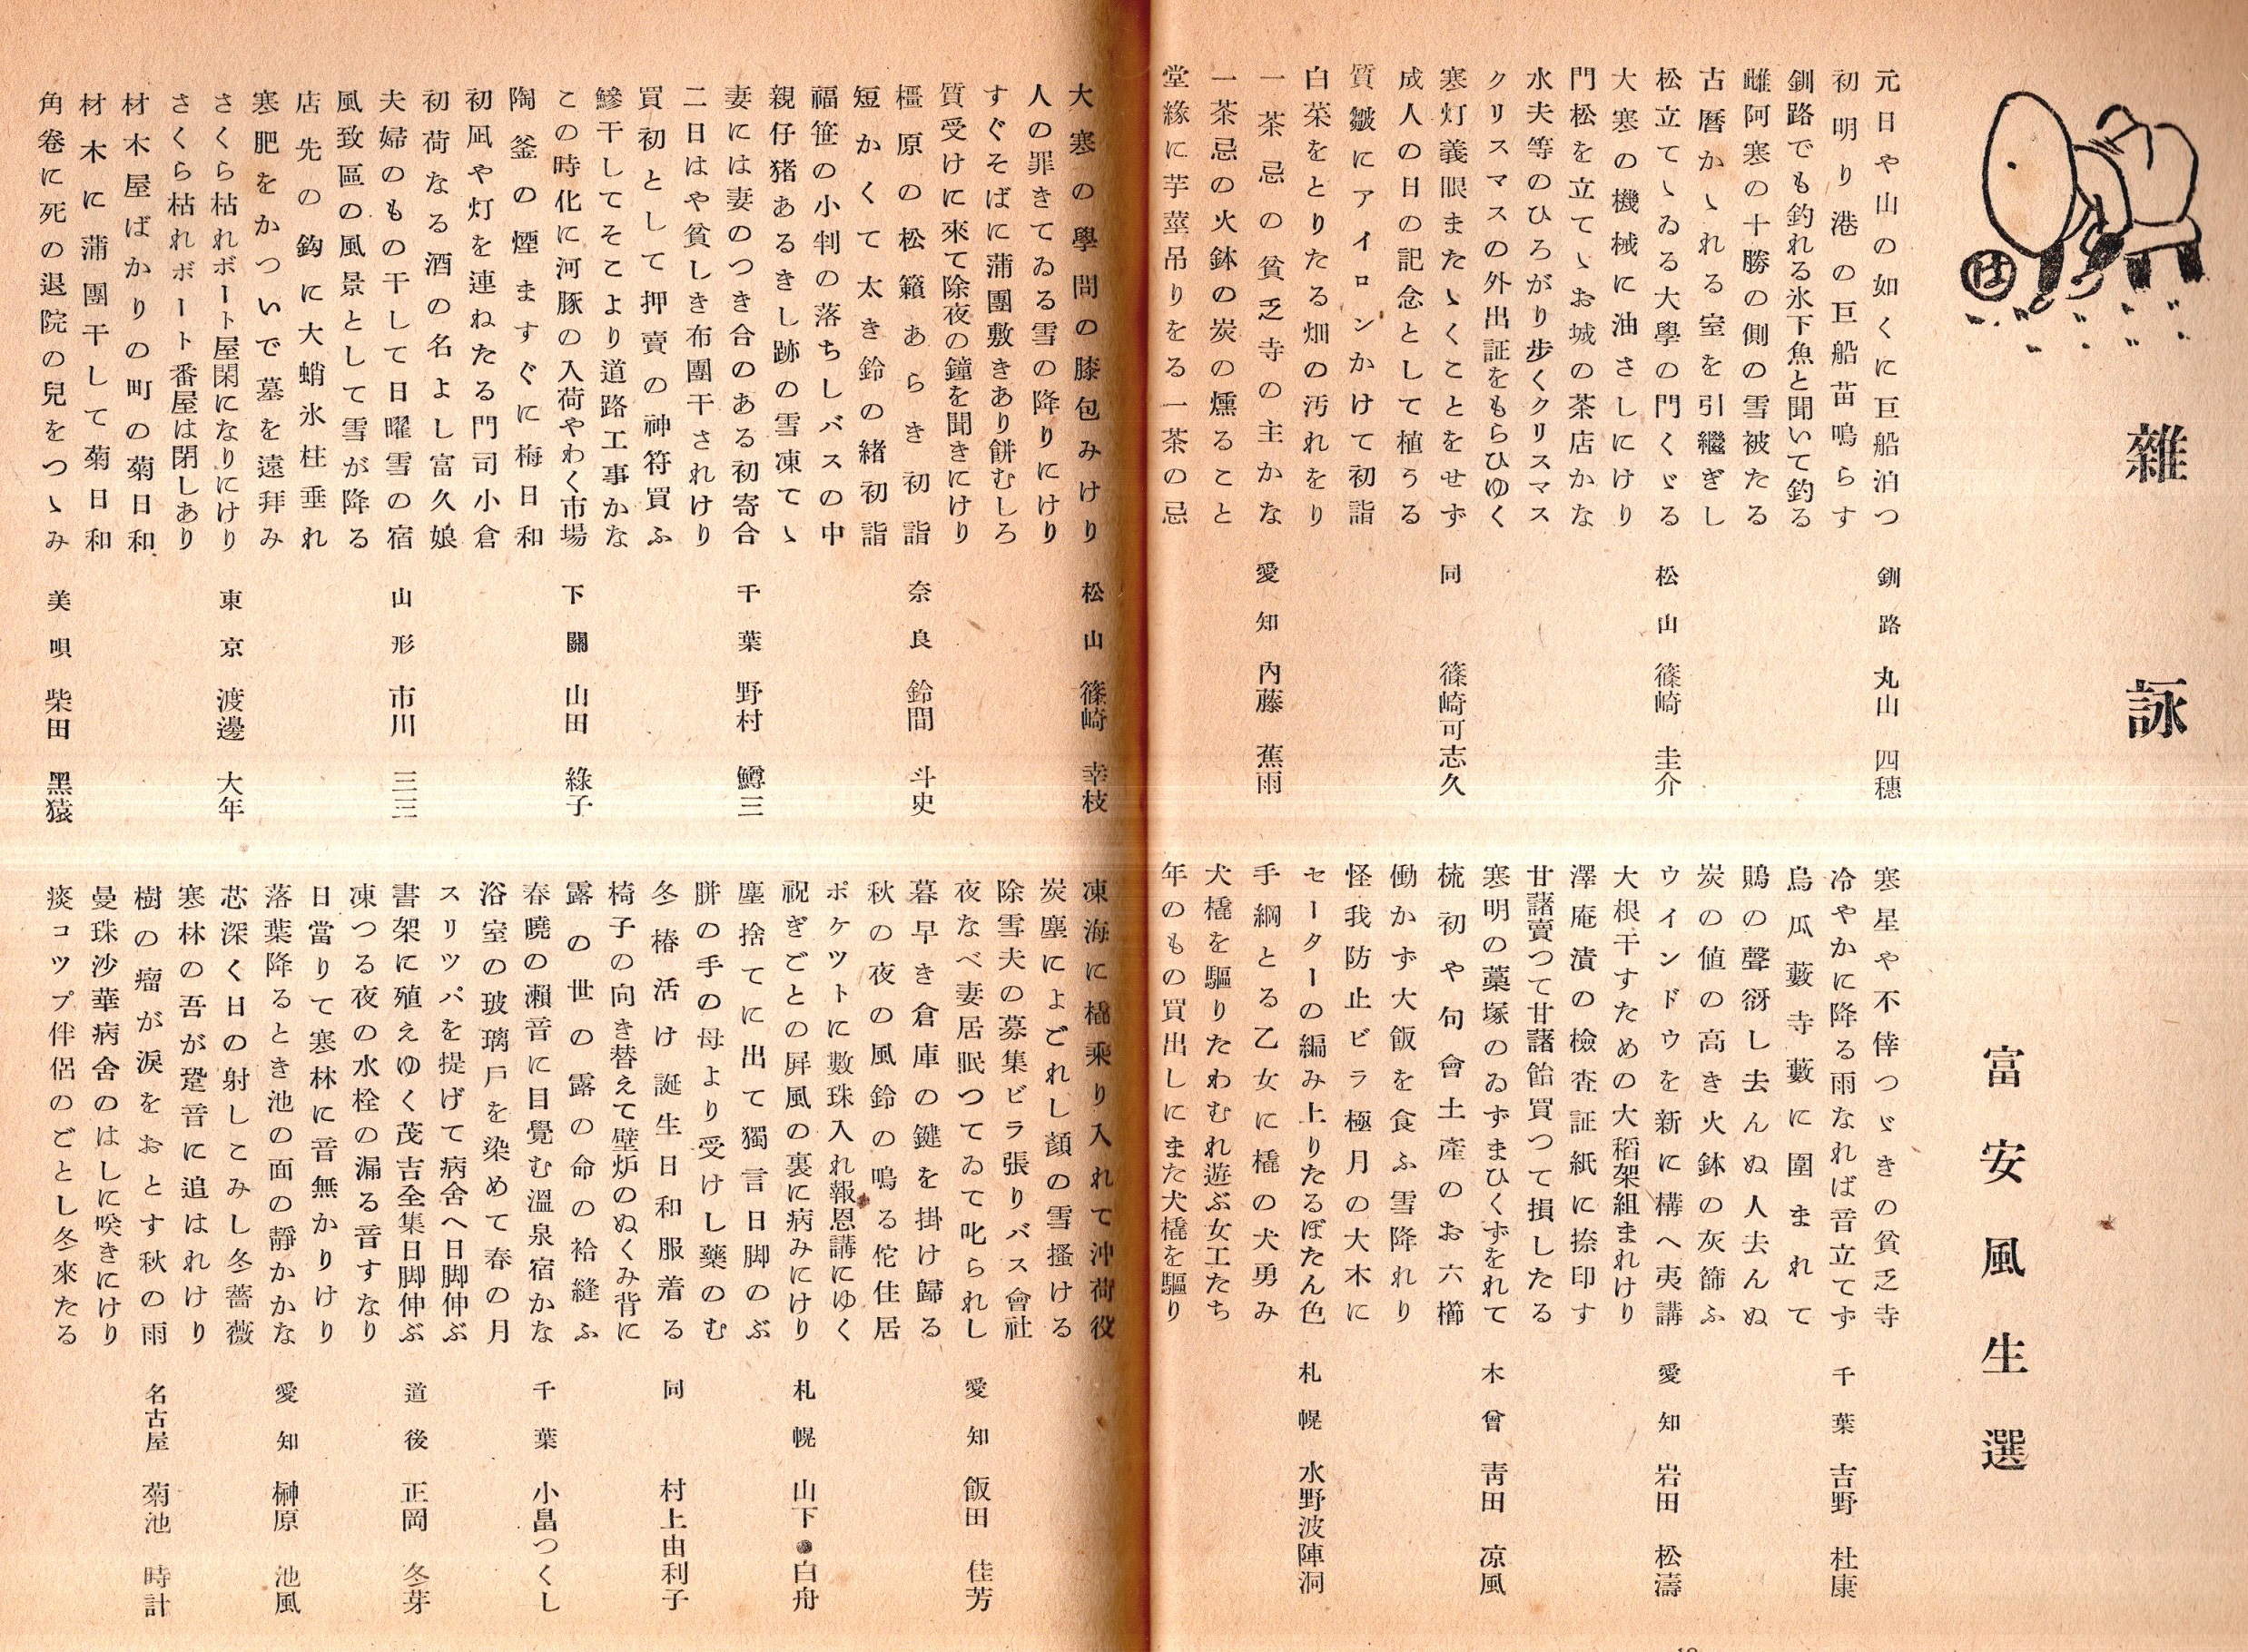 雜詠
富安風生選
元日や山の如くに巨船泊つ
釧路 丸山 四穗
初明り港の巨船苗鳴らす
釧路でも釣れる氷下魚と聞いて釣る
雌阿寒の十勝の側の雪被たる
古暦かゝれる室を引繼ぎし
松立てゝゐる大學の門くゞる
松山 篠崎 圭介
大寒の機械に油さしにけり
門松を立てゝお城の茶店かな
水夫等のひろがり歩くクリスマス
クリスマスの外出証をもらひゆく
寒灯義眼またゝくことをせず
同 篠崎可志久
成人の日の記念として植うる
質皺にアイロンかけて初詣
白菜をとりたる畑の汚れをり
一茶忌の貧乏寺の主かな
愛知 内藤 蕉雨
一茶忌の火鉢の炭の燻ること
堂緣に芋莖吊りをる一茶の忌
寒星や不倖つゞきの貧乏寺
冷やかに降る雨なれば音立てず
千葉 吉野 杜康
烏瓜藪寺藪に圍まれて
鵙の聲谺し去んぬ人去んぬ
炭の値の高き火鉢の灰篩ふ
ウインドウを新に構へ夷講
愛知 岩田 松濤
大根干すための大稻架組まれけり
澤庵漬の檢査証紙に捺印す
甘諸賣つて甘諸飴買つて損したる
寒明の藁塚のゐずまひくずをれて
木曾 靑田 凉風
梳初や句會土產のお六櫛
働かず大飯を食ふ雪降れり
怪我防止ビラ極月の大木に
セーターの編み上りたるぼたん色
札幌 水野波陣洞
手綱とる乙女に橇の犬勇み
犬橇を驅りたわむれ遊ぶ女工たち
年のもの買出しにまた犬橇を驅り
大寒の學問の膝包みけり
松山 篠崎 幸枝
人の罪きてゐる雪の降りにけり
すぐそばに蒲團敷きあり餅むしろ
質受けに來て除夜の鐘を聞きにけり
橿原の松籟あらき初詣
奈良 鈴間 斗史
短かくて太き鈴の緒初詣
福笹の小判の落ちしバスの中
親仔猪あるきし跡の雪凍てゝ
妻には妻のつき合のある初寄合
千葉 野村 鱒三
二日はや貧しき布團干されけり
買初として押賣の神符買ふ
鰺干してそこより道路工事かな
この時化に河豚の入荷やわく市場
下關 山田 綠子
陶釜の煙ますぐに梅日和
初凪や灯を連ねたる門司小倉
初荷なる酒の名よし富久娘
夫婦のもの干して日曜雪の宿
山形 市川 三三
風致區の風景として雪が降る
店先の鈎に大蛸氷柱垂れ
寒肥をかついで墓を遠拜み
さくら枯れボート屋閑になりにけり
東京 渡邊 大年
さくら枯れボート番屋は閉しあり
材木屋ばかりの町の菊日和
材木に蒲團干して菊日和
角卷に死の退院の兒をつゝみ
美唄 柴田 黑猿
凍海に橇乘り入れて沖荷役
炭塵によごれし顔の雪搔ける
除雪夫の募集ビラ張りバス會社
夜なべ妻居眠つてゐて叱られし
愛知 飯田 佳芳
暮早き倉庫の鍵を掛け歸る
秋の夜の風鈴の鳴る佗住居
ポケツトに數珠入れ報恩講にゆく
祝ぎごとの屛風の裏に病みにけり
札幌 山下 白舟
塵捨てに出て獨言日脚のぶ
胼の手の母より受けし藥のむ
冬椿活け誕生日和服着る
同 村上由利子
椅子の向き替えて壁炉のぬくみ背に
露の世の露の命の袷縫ふ
春曉の瀨音に目覺む溫泉宿かな
千葉 小畠つくし
浴室の玻璃戸を染めて春の月
スリツパを提げて病舍へ日脚伸ぶ
書架に殖えゆく茂吉全集日脚伸ぶ
道後 正岡 冬芽
凍つる夜の水栓の漏る音すなり
日當りて寒林に音無かりけり
落葉降るとき池の面の靜かかな
愛知 榊原 池風
芯深く日の射しこみし冬薔薇
寒林の吾が跫音に追はれけり
樹の瘤が淚をおとす秋の雨
名古屋 菊池 時計
曼珠沙華病舍のはしに咲きにけり
痰コツプ伴侶のごとし冬來たる